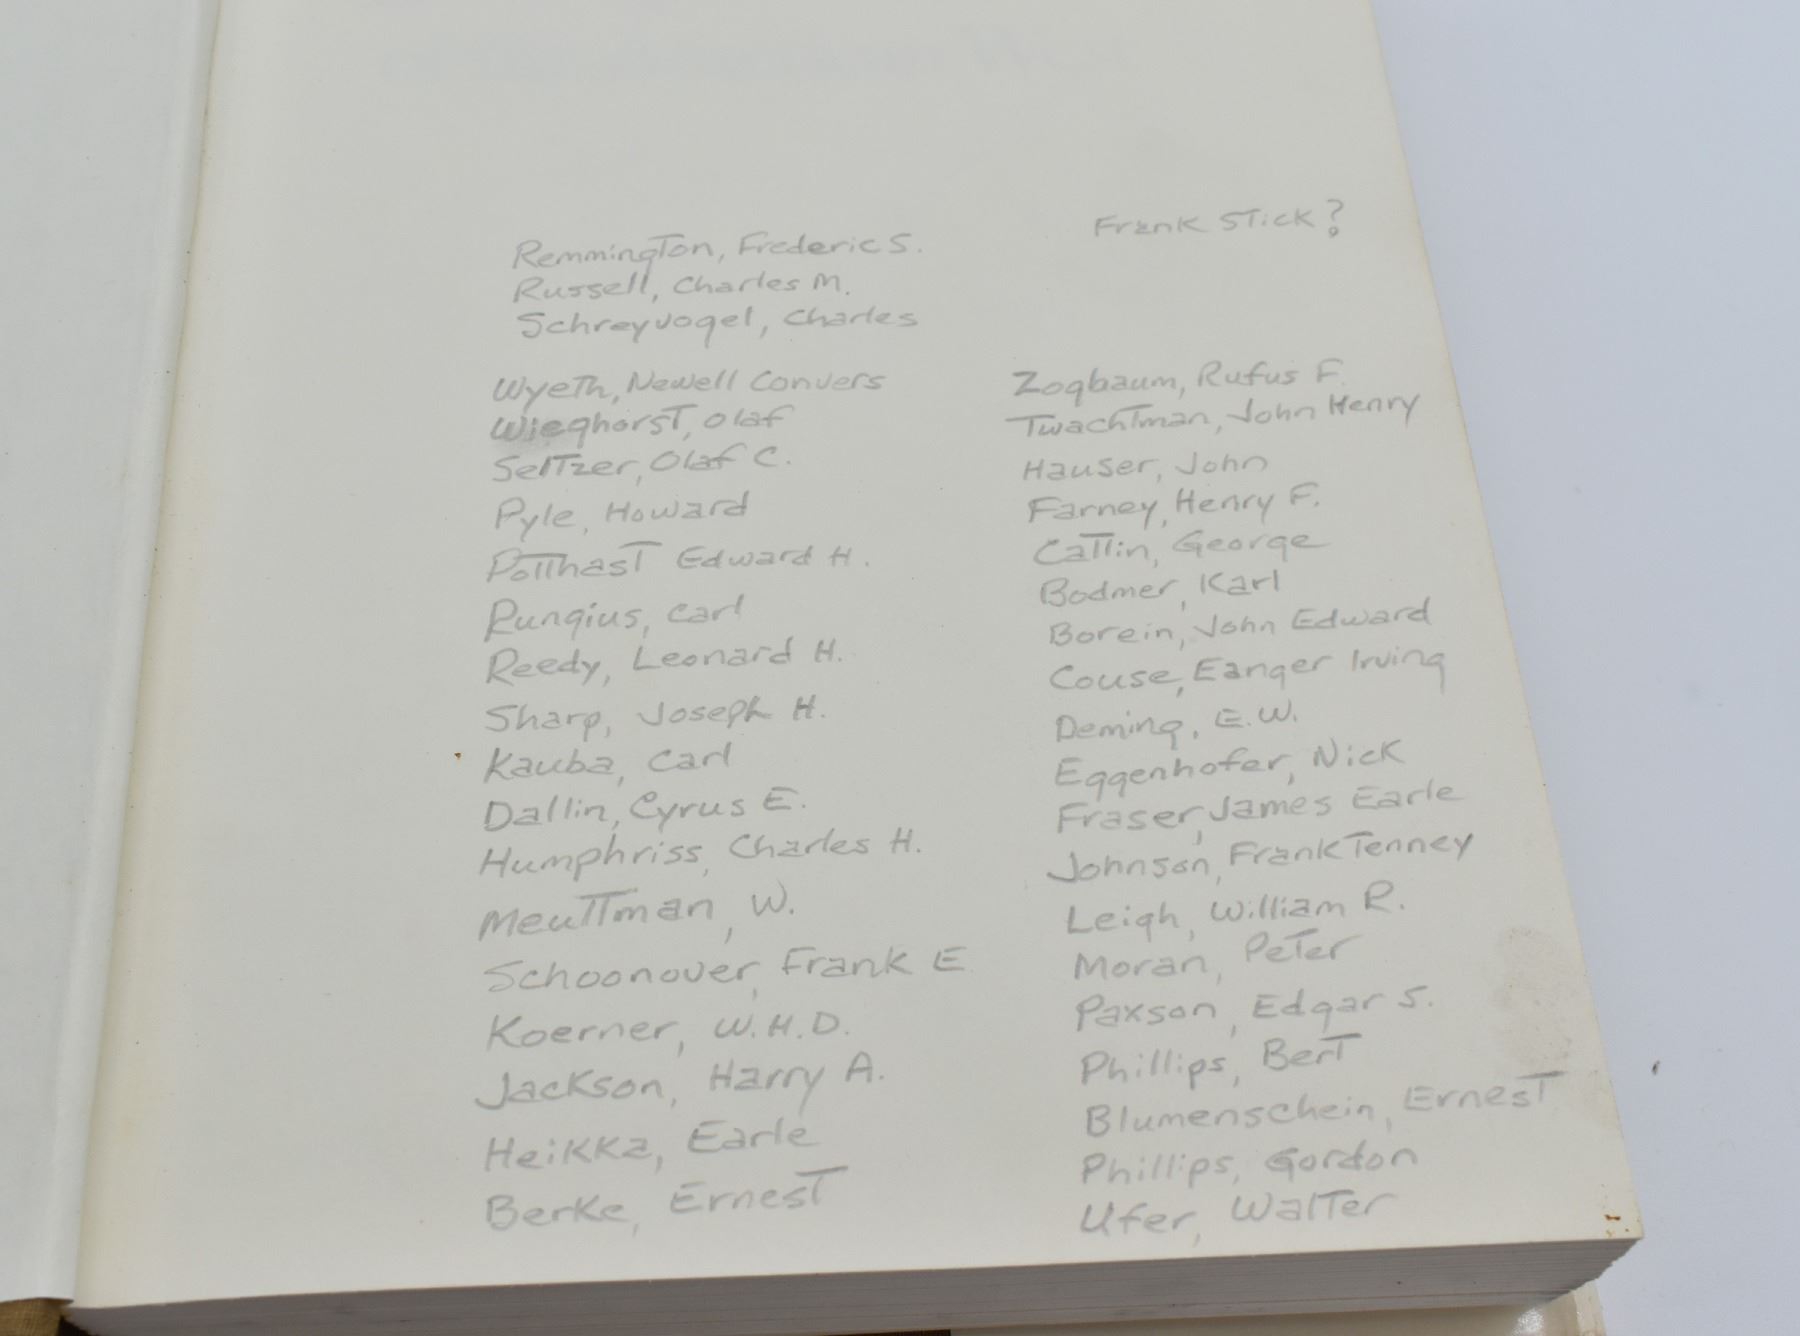 Remmington, Frederic S.
Russell, Charles M.
Schreyvogel, Charles
Wyeth, Newell Convers
Wieghorst, Olaf
Seltzer, Olaf C.
Pyle, Howard
Potthast Edward H.
Rungius, Carl
Reedy, Leonard H.
Sharp, Joseph H.
Kauba, Carl
Dallin, Cyrus E.
Humphriss, Charles H.
Meuttman, W.
Schoonover, Frank E
Koerner, W.H.D.
Jackson, Harry A.
Heikka, Earle
Berke, Ernest
Frank Stick?
Zogbaum, Rufus F.
Twachtman, John Henry
Hauser, John
Farney, Henry F.
Catlin, George
Bodmer, Karl
Borein, John Edward
Couse, Eanger Irving
Deming, E.W.
Eggenhofer, Nick
Fraser, James Earle
Johnson, Frank Tenney
Leigh, William R.
Moran, Peter
Paxson, Edgar S.
Phillips, Bert
Blumenschein, Ernest
Phillips, Gordon
Ufer, Walter